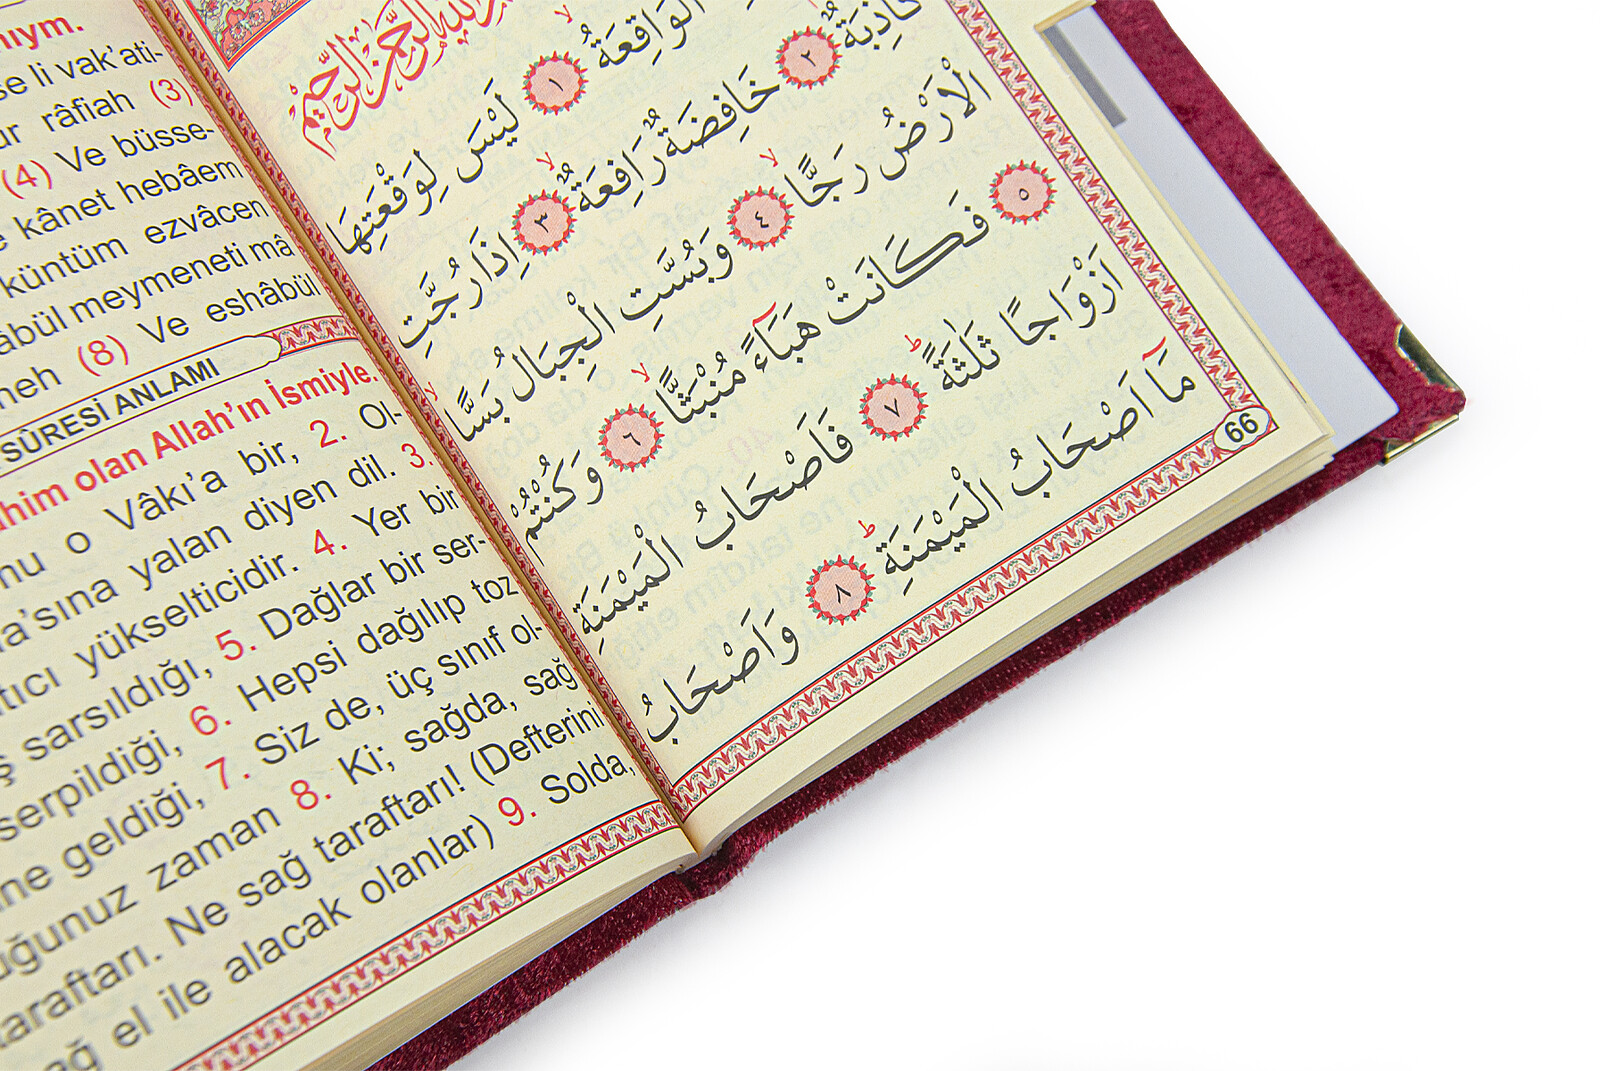 se li vak'ati-
râfiah (3)
(4) Ve büsse-
kânet hebâem
küntüm ezvâcen
meymeneti mâ
(8) Ve eshâbül
SÛRESİ ANLAMI
olan Allah'ın İsmiyle.
o Vâkı'a bir, 2. Ol-
yalan diyen dil. 3.
yükselticidir. 4. Yer bir
sarsıldığı, 5. Dağlar bir ser-
serpildiği, 6. Hepsi dağılıp toz
geldiği, 7. Siz de, üç sınıf ol-
zaman 8. Ki; sağda, sağ
taraftarı. Ne sağ taraftarı! (Defterini
el ile alacak olanlar) 9. Solda,
الرَّحْمٰنِ الرَّحِيمِ
الْوَاقِعَةُ ١ لَيْسَ لِوَقْعَتِهَا
كَاذِبَةٌ ٢ خَافِضَةٌ رَافِعَةٌ ٣ اِذَا رُجَّتِ
الْاَرْضُ رَجًّا ٤ وَبُسَّتِ الْجِبَالُ بَسًّا
٥ فَكَانَتْ هَبَٓاءً مُنْبَثًّا ٦ وَكُنْتُمْ
اَزْوَاجًا ثَلٰثَةً ٧ فَاَصْحَابُ الْمَيْمَنَةِ
مَٓا اَصْحَابُ الْمَيْمَنَةِ ٨ وَاَصْحَابُ
66